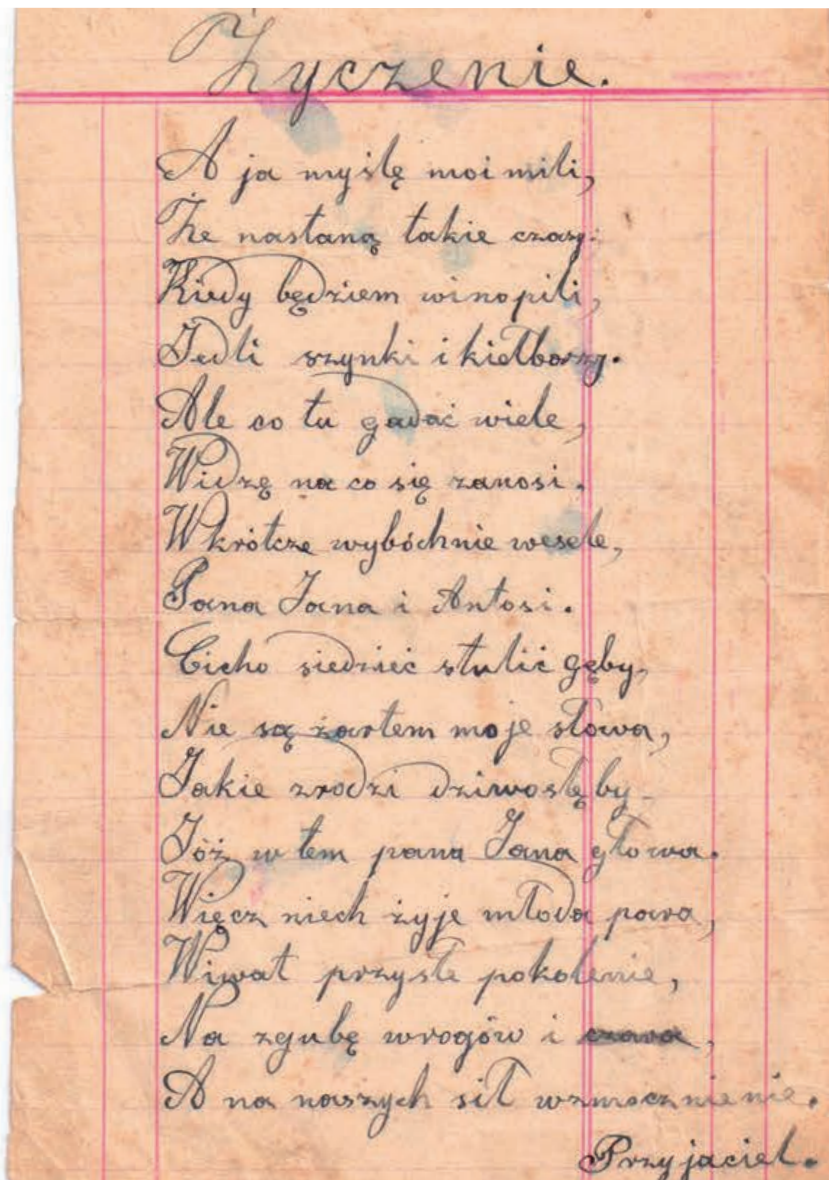 Życzenie.
A ja myślę moi mili,
Że nastaną takie czasy:
Kiedy będziem wino pili,
Jedli szynki i kiełborzy.
Ale co tu gadać wiele,
Widzę na co się zanosi.
Wkrótcze wybóchnie wesele,
Pana Jana i Antosi.
Cicho siedzieć stulić gęby,
Nie są żartem moje słowa,
Jakie zrodzi dziwostęby
Jóż w tem pana Jana głowa.
Więcz niech żyje młoda para,
Wiwat przyste pokolenie,
Na zgubę wrogów i
A na naszych sił wzmocznienie.
Przyjaciel.